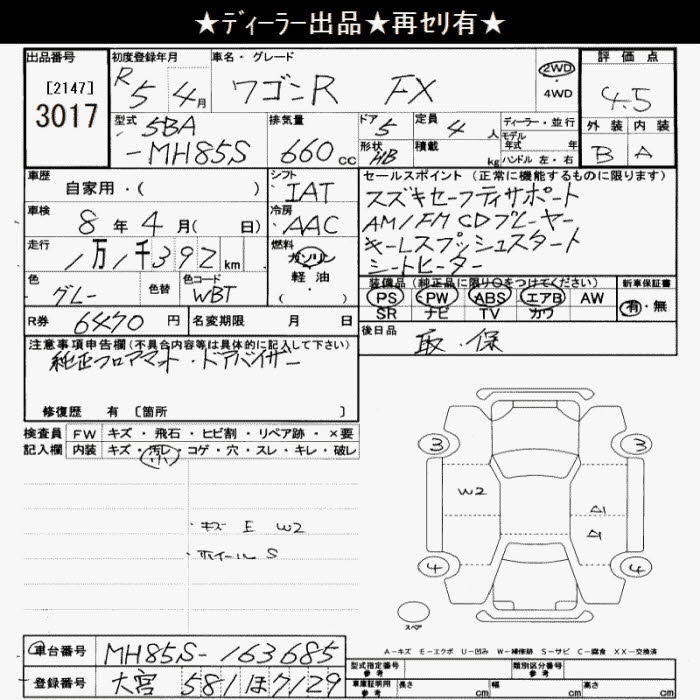 ★ディーラー出品★再セリ有★
出品番号 初度登録年月 車名・グレード 評価点
[2147] R5 4月 ワゴンR FX 2WD ・ 4WD 4.5
3017
型式 排気量 ドア 定員 ディーラー・並行 外装 内装
5BA 5 4人 モデル年式 年式 B A
-MH85S 660cc 形状 HB 積載 kg ハンドル 左・右
車歴 シフト セールスポイント (正常に機能するものに限ります)
自家用・( ) IAT スズキセーフティサポート
車検 冷房 AM/FM CDプレーヤー
8年4月( 日) AAC キーレスプッシュスタート
走行 燃料 シートヒーター
1万1千392km ガソリン
軽油
・( )
色 色替 色コード 装備品 (純正品に限り○をつけてください) 新車保証書
グレー WBT PS PW ABS エアB AW 有・無
SR ナビ TV カワ
R券 6470円 名変期限 月 日 後日品
取・保
注意事項申告欄(不具合内容等は具体的に記入して下さい)
純正フロアマット・ドアバイザー
修復歴 有 〔箇所 〕
検査員 FW キズ・飛石・ヒビ割・リペア跡・×要
記入欄 内装 キズ・汚レ・コゲ・穴・スレ・キレ・破レ
小
・キズ E W2
・ホイール S
3 3
W2 A1
A1
4 4
スペア
A-キズ E-エクボ U-凹み W-補修跡 S-サビ C-腐食 XX-交換済
車台番号 MH85S-163685 型式指定番号 参考 類別区分番号 参考
登録番号 大宮 581 ほ 7129 車庫証明用 参考 長さ cm 幅 cm 高さ cm